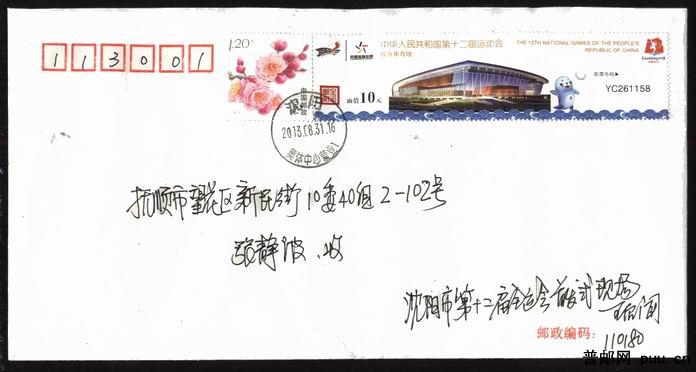 113001
1.20元
中国邮政
中华人民共和国第十二届运动会
综合体育馆
THE 12TH NATIONAL GAMES OF THE PEOPLE'S
REPUBLIC OF CHINA
彩票号码
YC261158
面值10元
沈阳
2013.08.31.16
奥体中心营业1
抚顺市望花区新民街10委40组2-102号
张静波 收
沈阳市第十二届全运会 式现场
110180
邮政编码:
普邮网 puu.cn